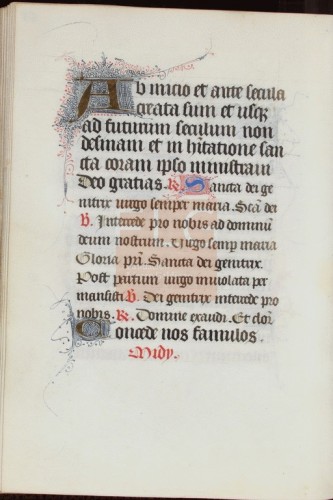 Ab inicio et ante secula
creata sum et usq3
ad futurum seculum non
desinam et in hitatione san
cta coram ipso ministraui
Deo gratias. R. Sancta dei ge
nitrix uirgo semper maria. Sca dei
V. Intercede pro nobis ad dominum
deum nostrum. Uirgo semp maria
Gloria pri. Sancta dei genitrix.
Post partum uirgo inuiolata per
mansisti V. Dei genitrix intercede pro
nobis. R. Domine exaudi. Et clor
Concede nos famulos.
Midy.